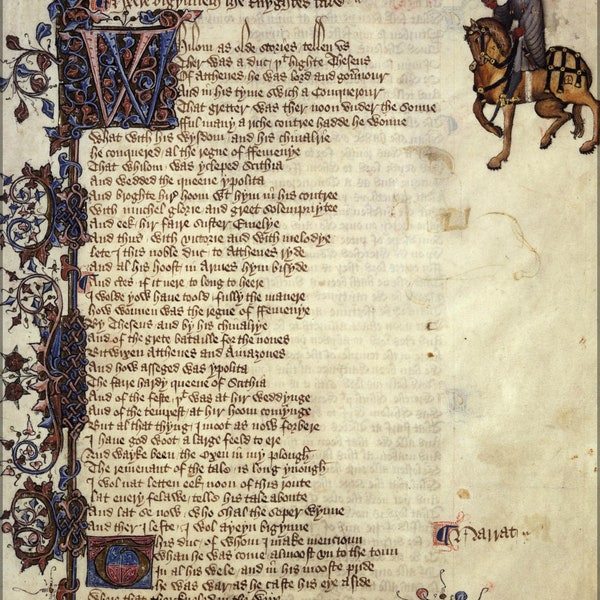 Heere bigynneth the knyghtes tale
Whilom as olde stories tellen us
Ther was a duc þt highte Theseus
Of Atthenes he was lord and gouernour
And in his tyme swich a Conquerour
That gretter was ther noon under the sonne
fful many a riche contree hadde he wonne
What with his wysdom and his chiualrie
he conquered al the regne of ffemenye
That whilom was ycleped Scithia
And wedded the queene ypolita
And broghte hir hoom wt hym in his contree
With muchel glorie and greet solempnytee
And eek hir faire suster Emelye
And thus with victorie and with melodye
lete I this noble duc to Atthenes ryde
And al his hoost in Armes hym bisyde
And certes if it nere to long to heere
I wolde yow haue toold fully the manere
how wonnen was the regne of ffemenye
By Theseus and by his chiualrye
And of the grete bataille for the nones
Bitwixen Atthenes and Amazones
And how asseged was ypolita
The faire hardy queene of Scithia
And of the feste þt was at hir weddynge
And of the tempest at hir hoom comynge
But al that thyng I moot as now forbere
I haue god woot a large feeld to ere
And wayke been the Oxen in my plough
The remenant of the tale is long ynough
I wol nat letten eek noon of this route
lat euery felawe telle his tale aboute
And lat se now who shal the soper wynne
And ther I lefte I wol ayeyn bigynne
This duc of whom I make mencioun
Narrat
Whan he was come almoost vn to the toun
In al his wele and in his mooste pride
He was war as he caste his eye aside
Where that ther kneled in the weye